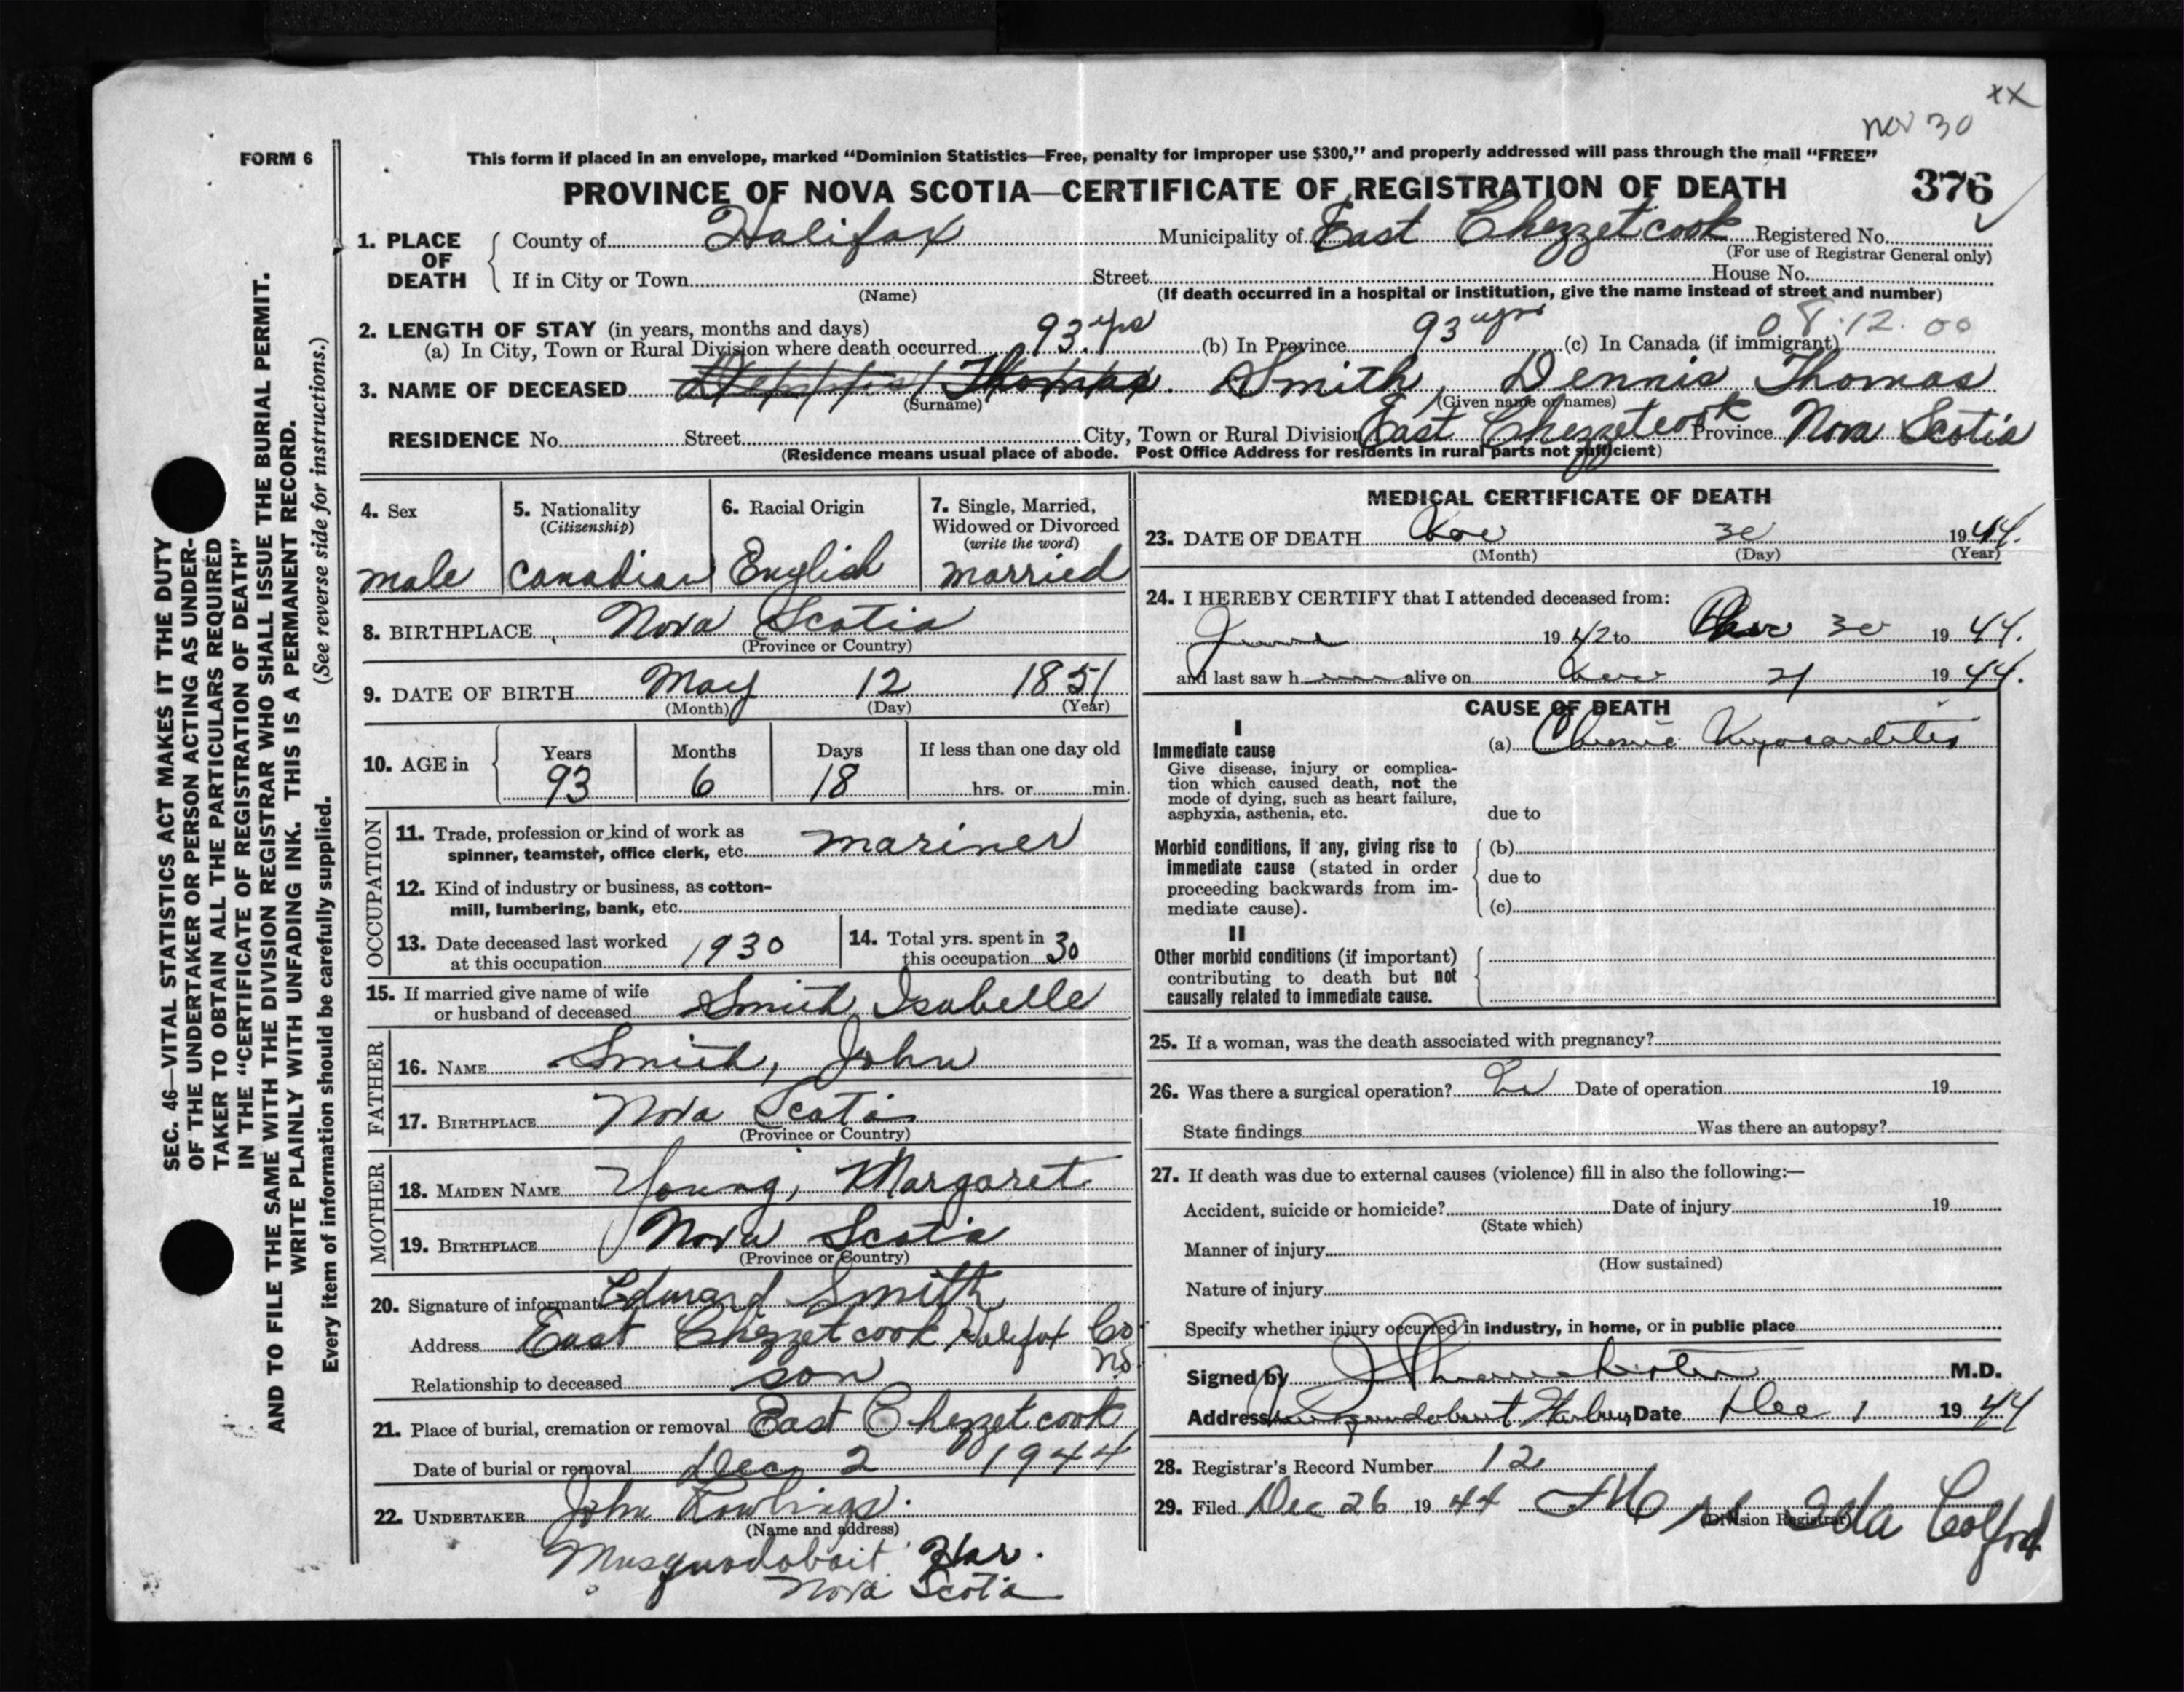 XX
Nov 30
FORM 6
This form if placed in an envelope, marked “Dominion Statistics—Free, penalty for improper use $300,” and properly addressed will pass through the mail “FREE”
PROVINCE OF NOVA SCOTIA—CERTIFICATE OF REGISTRATION OF DEATH 376
1. PLACE OF DEATH County of Halifax Municipality of East Chezzetcook Registered No.
(For use of Registrar General only)
If in City or Town Street House No.
(Name) (If death occurred in a hospital or institution, give the name instead of street and number)
2. LENGTH OF STAY (in years, months and days) 08.12.00
(a) In City, Town or Rural Division where death occurred 93 yrs (b) In Province 93 yrs (c) In Canada (if immigrant)
3. NAME OF DECEASED Dennis Thomas. Smith, Dennis Thomas
(Surname) (Given name or names)
RESIDENCE No. Street City, Town or Rural Division East Chezzetcook Province Nova Scotia
(Residence means usual place of abode. Post Office Address for residents in rural parts not sufficient)
SEC. 46—VITAL STATISTICS ACT MAKES IT THE DUTY
OF THE UNDERTAKER OR PERSON ACTING AS UNDER-
TAKER TO OBTAIN ALL THE PARTICULARS REQUIRED
IN THE “CERTIFICATE OF REGISTRATION OF DEATH”
AND TO FILE THE SAME WITH THE DIVISION REGISTRAR WHO SHALL ISSUE THE BURIAL PERMIT.
WRITE PLAINLY WITH UNFADING INK. THIS IS A PERMANENT RECORD.
Every item of information should be carefully supplied. (See reverse side for instructions.)
4. Sex
male
5. Nationality
(Citizenship)
Canadian
6. Racial Origin
English
7. Single, Married,
Widowed or Divorced
(write the word)
married
8. BIRTHPLACE Nova Scotia
(Province or Country)
9. DATE OF BIRTH May 12 1851
(Month) (Day) (Year)
10. AGE in Years Months Days If less than one day old
93 6 18 hrs. or min.
OCCUPATION
11. Trade, profession or kind of work as
spinner, teamster, office clerk, etc. mariner
12. Kind of industry or business, as cotton-
mill, lumbering, bank, etc.
13. Date deceased last worked
at this occupation 1930
14. Total yrs. spent in
this occupation 30
15. If married give name of wife
or husband of deceased Smith, Isabelle
FATHER
16. NAME Smith, John
17. BIRTHPLACE Nova Scotia
(Province or Country)
MOTHER
18. MAIDEN NAME Young, Margaret
19. BIRTHPLACE Nova Scotia
(Province or Country)
20. Signature of informant Edward Smith
Address East Chezzetcook Halifax Co
NS
Relationship to deceased son
21. Place of burial, cremation or removal East Chezzetcook
Date of burial or removal Dec 2 1944
22. UNDERTAKER John Rowlings.
(Name and address)
Musquodoboit Har.
Nova Scotia
MEDICAL CERTIFICATE OF DEATH
23. DATE OF DEATH Nov 30 1944.
(Month) (Day) (Year)
24. I HEREBY CERTIFY that I attended deceased from:
1942 to Nov 30 1944.
and last saw h im alive on Nov 21 1944.
CAUSE OF DEATH
I
Immediate cause
Give disease, injury or complica-
tion which caused death, not the
mode of dying, such as heart failure,
asphyxia, asthenia, etc.
(a) Chronic Myocarditis
due to
Morbid conditions, if any, giving rise to
immediate cause (stated in order
proceeding backwards from im-
mediate cause).
(b)
due to
(c)
II
Other morbid conditions (if important)
contributing to death but not
causally related to immediate cause.
25. If a woman, was the death associated with pregnancy?
26. Was there a surgical operation? No Date of operation 19
State findings Was there an autopsy?
27. If death was due to external causes (violence) fill in also the following:—
Accident, suicide or homicide? Date of injury 19
(State which)
Manner of injury
(How sustained)
Nature of injury
Specify whether injury occurred in industry, in home, or in public place
Signed by M.D.
Address Musquodoboit Harbour Date Dec 1 1944
28. Registrar's Record Number 12
29. Filed Dec 26 1944 Mrs Ida Colford
(Division Registrar)